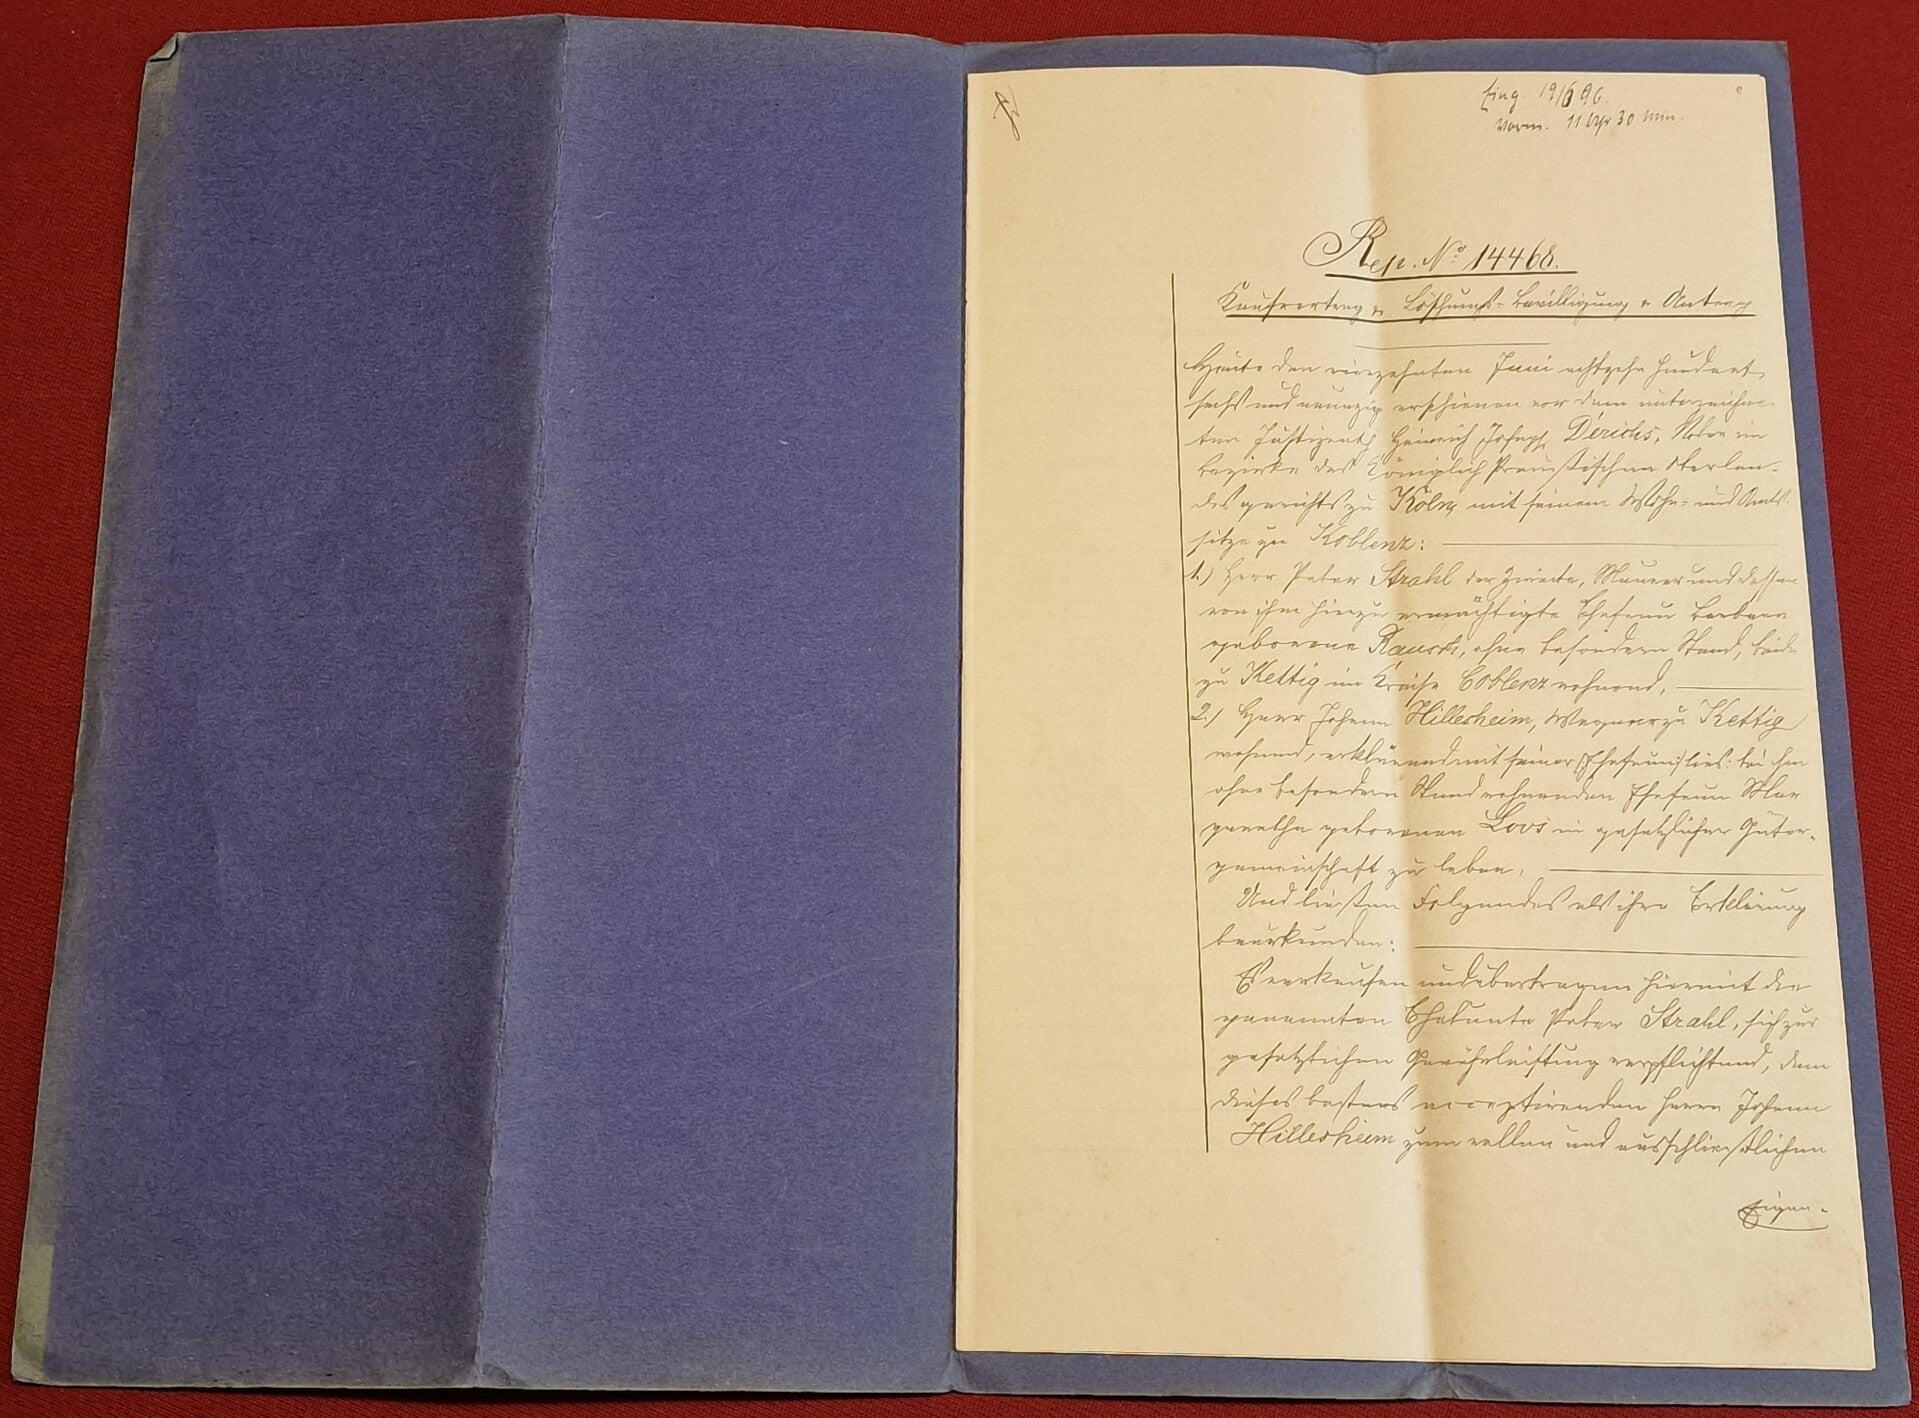 Eing. 19/6 96.
Vorm. 11 Uhr 30 min.
Rep. No 14468.
Kaufvertrag u. Löschungs-Bewilligung u. Antrag
Heute den vierzehnten Juni achtzehn hundert
sechs und neunzig erschienen vor dem unterzeichne-
ten Justizrath Heinrich Joseph Derichs, Notar im
Bezirke des Königlich Preußischen Oberlan-
desgerichts zu Köln, mit seinem Wohn- und Amts-
sitze zu Koblenz:
1.) Herr Peter Strahl der Zweite, Maurer und dessen
von ihm hierzu ermächtigte Ehefrau Barbara
geborene Rausch, ohne besondern Stand, beide
zu Kettig im Kreise Coblenz wohnend,
2.) Herr Johann Hillesheim, Wagner zu Kettig
wohnend, erklärend mit seiner Ehefrau lies: bei ihm
ohne besondern Stand wohnenden Ehefrau Mar
garetha geborenen Loos in gesetzlicher Güter-
gemeinschaft zu leben,
Und ließen Folgendes als ihre Erklärung
beurkunden:
Es verkaufen und übertragen hiermit die
genannten Eheleute Peter Strahl, sich zur
gesetzlichen Gewährleistung verpflichtend, dem
dieses bestens acceptirenden Herrn Johann
Hillesheim zum vollen und ausschließlichen
Eigen-